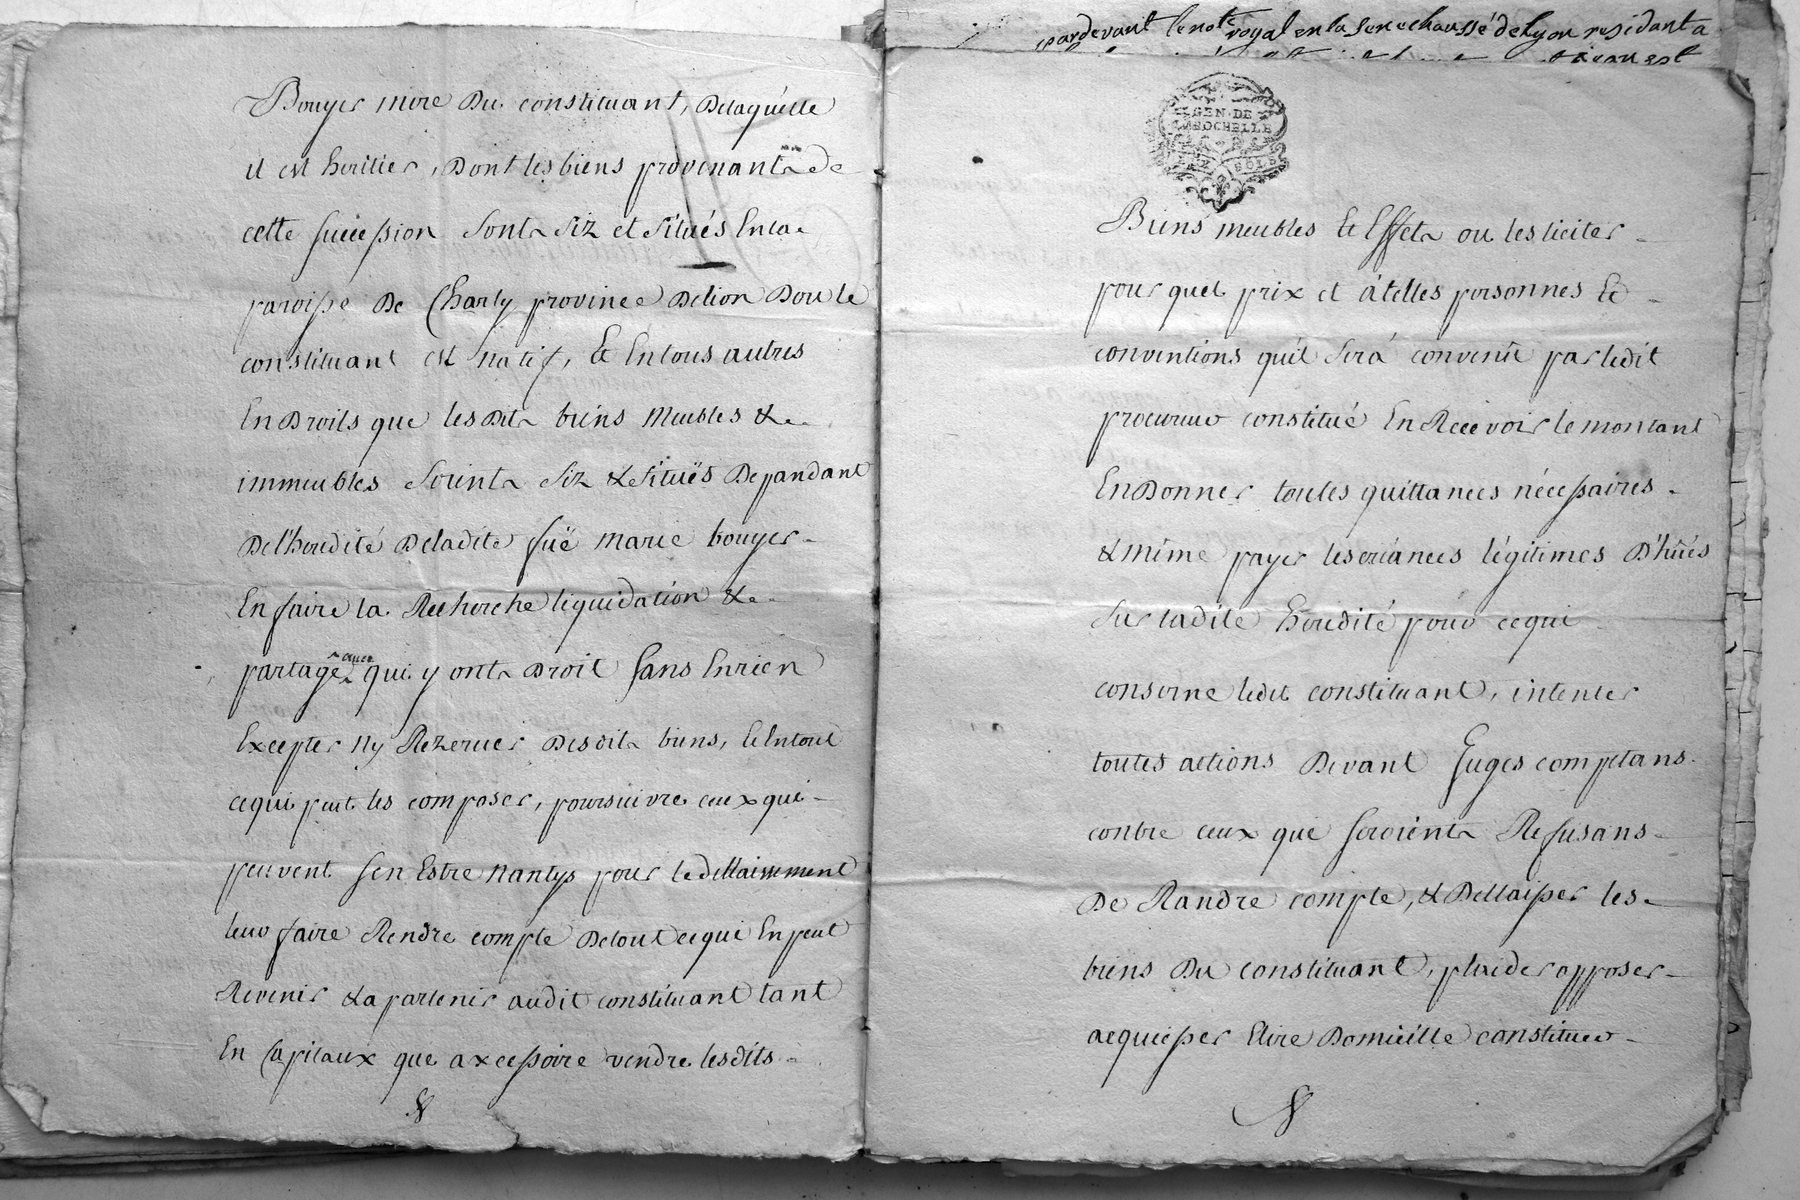 Bouyer mere Du constituant, Delaquelle
il est heritier, Dont les biens provenants de
cette succession Sont Siz et Situés Enla
paroisse De Charly province Delion Dou le
constituant est natif, Et Entous autres
EnDroits que les Dits biens Meubles &
immeubles Soient Siz & Situës Depandant
Del'heredité Deladite füe marie bouyer
En faire la Recherche liquidation &
partage avec qui y ont Droit Sans Enrien
Excepter Ny Rezerver Desdits biens, EtEntout
cequi peut les composer, poursuivre ceux qui
peuvent sen Estre Nantys pour le dellaissement
leur faire Rendre compte Detout cequi En peut
Revenir & apartenir audit constituant tant
En Capitaux que axcessoire vendre lesdits
pardevant le not.e royal en la Senechaussé de Lyon residant a
GEN.DE
LAROCHELLE
SOLS
Biens meubles Et Effets ou les liciter
pour quel prix et átelles personnes Et
conventions quil Será convenü par ledit
procureur constitué En Recevoir le montant
EnDonner toutes quittances nécessaires
& même payer les créances légitimes D'hües
Sur ladite heredité pour cequi
conserne ledit constituant, intenter
toutes actions Devant Juges comptans
contre ceux que seroient Refusans
De Randre compte, & Dellaisser les
biens Du constituant, plaider opposer
acquiesser Elire Domicille constituer